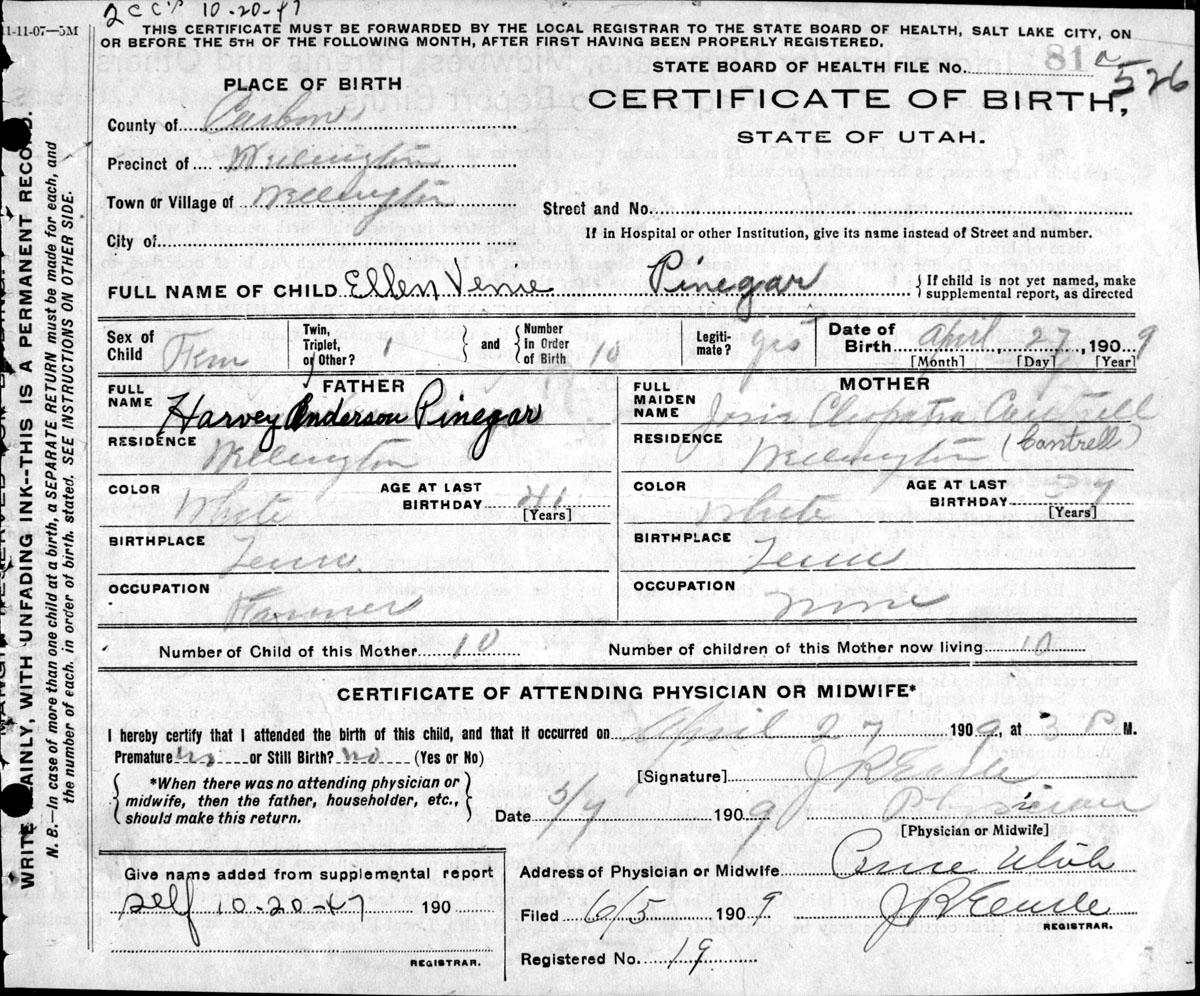 2 CC's 10-20-47
11-11-07—5M
THIS CERTIFICATE MUST BE FORWARDED BY THE LOCAL REGISTRAR TO THE STATE BOARD OF HEALTH, SALT LAKE CITY, ON
OR BEFORE THE 5TH OF THE FOLLOWING MONTH, AFTER FIRST HAVING BEEN PROPERLY REGISTERED.
STATE BOARD OF HEALTH FILE No. 81a 526
PLACE OF BIRTH
CERTIFICATE OF BIRTH,
STATE OF UTAH.
County of Carbon
Precinct of Wellington
Town or Village of Wellington
Street and No.
City of
If in Hospital or other Institution, give its name instead of Street and number.
FULL NAME OF CHILD Ellen Verne Pinegar { If child is not yet named, make
supplemental report, as directed
Sex of Child Fem Twin, Triplet, or Other? 1 { and } Number In Order of Birth 10 Legitimate? yes Date of Birth April 27, 1909
[Month] [Day] [Year]
FATHER
FULL NAME Harvey Anderson Pinegar
RESIDENCE Wellington
COLOR White AGE AT LAST BIRTHDAY 41 [Years]
BIRTHPLACE Tenn.
OCCUPATION Farmer
MOTHER
FULL MAIDEN NAME Josia Cleopatra Cantrell
RESIDENCE Wellington (Cantrell)
COLOR White AGE AT LAST BIRTHDAY 37 [Years]
BIRTHPLACE Tenn
OCCUPATION none
Number of Child of this Mother 10 Number of children of this Mother now living 10
CERTIFICATE OF ATTENDING PHYSICIAN OR MIDWIFE*
I hereby certify that I attended the birth of this child, and that it occurred on April 27 1909, at 3 P M.
Premature? no or Still Birth? no (Yes or No)
*When there was no attending physician or
midwife, then the father, householder, etc.,
should make this return.
[Signature] J R Earle
Date 5/7 1909 Physician
[Physician or Midwife]
Give name added from supplemental report
self 10-20-47 190
REGISTRAR.
Address of Physician or Midwife Price Utah
Filed 6/5 1909 J R Earle
REGISTRAR.
Registered No. 19
WRITE PLAINLY, WITH UNFADING INK--THIS IS A PERMANENT RECORD.
N. B.—In case of more than one child at a birth, a SEPARATE RETURN must be made for each, and
the number of each, in order of birth, stated. SEE INSTRUCTIONS ON OTHER SIDE.